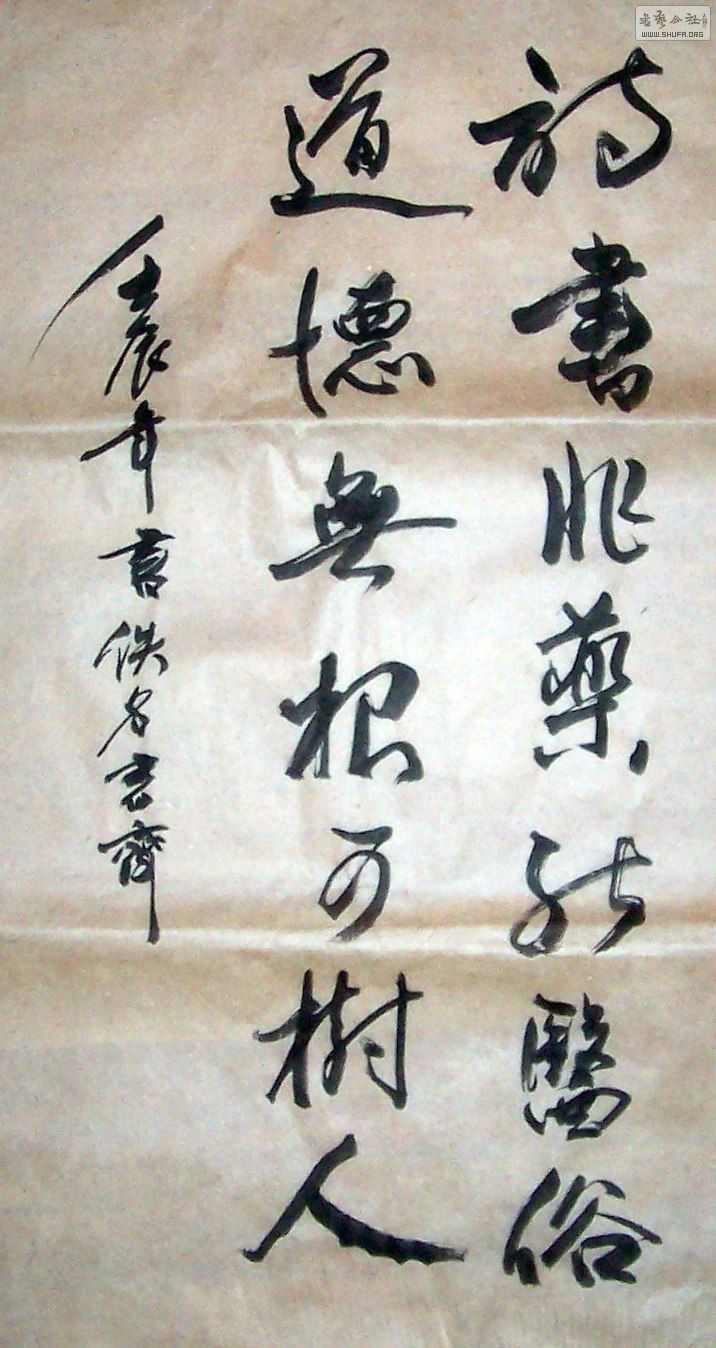 詩書非藥能醫俗
道德無根可樹人
壬辰年書佚名書齋
書藝公社
WWW.SHUFA.ORG